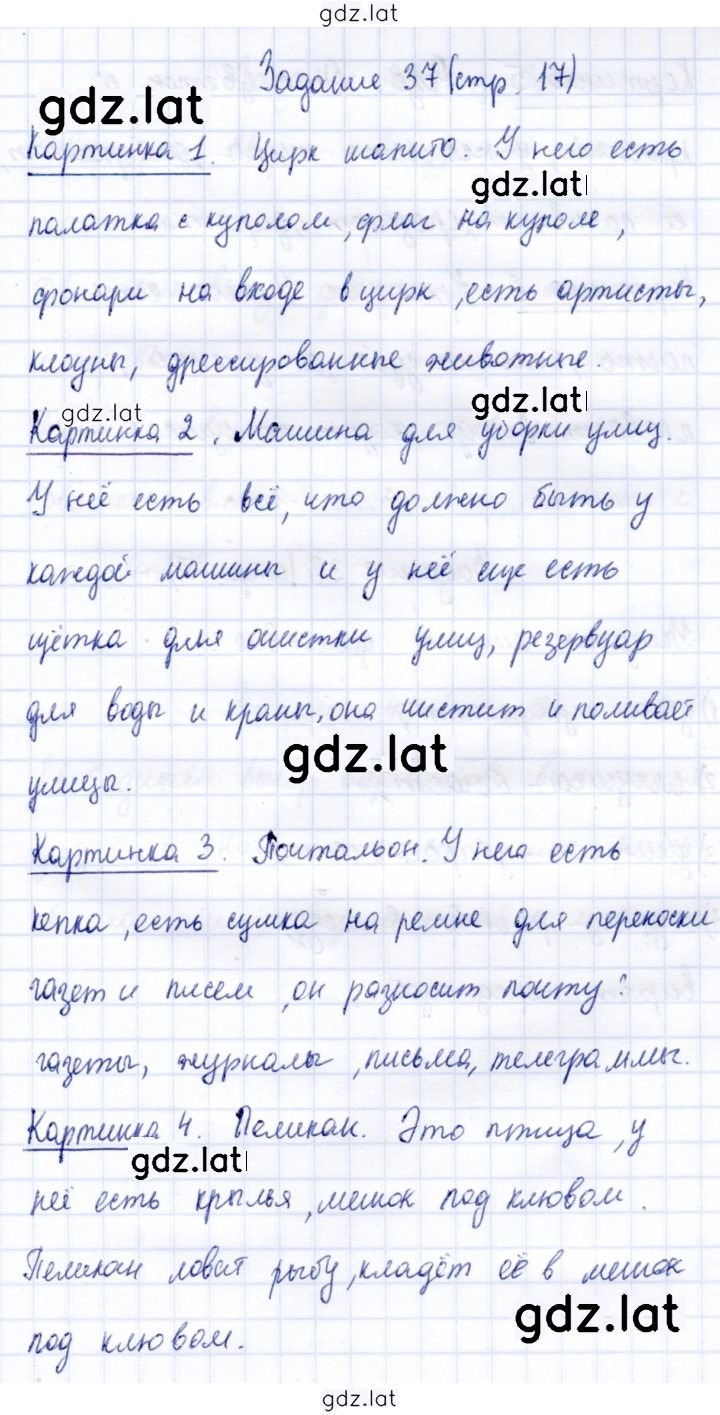 gdz.lat
Задание 37 (стр. 17)
gdz.lat
Картинка 1. Цирк шапито. У него есть
gdz.lat
палатка с куполом, флаг на куполе,
фонари на входе в цирк, есть артисты,
клоуны, дрессированные животные.
gdz.lat
gdz.lat
Картинка 2. Машина для уборки улиц.
У неё есть всё, что должно быть у
каждой машины и у неё еще есть
щётка для очистки улиц, резервуар
для воды и краны, она чистит и поливает
gdz.lat
улицы.
Картинка 3. Почтальон. У него есть
кепка, есть сумка на ремне для переноски
газет и писем, он разносит почту:
газеты, журналы, письма, телеграммы.
Картинка 4. Пеликан. Это птица, у
gdz.lat
неё есть крылья, мешок под клювом.
Пеликан ловит рыбу, кладёт её в мешок
gdz.lat
под клювом.
gdz.lat